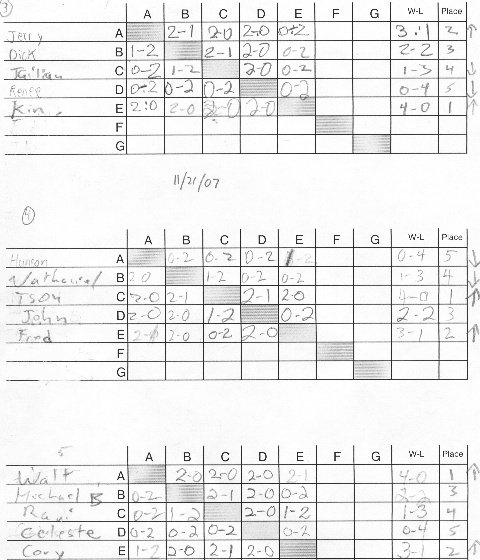 3
A B C D E F G W-L Place
Jerry A 2-1 2-0 2-0 0-2 3-1 2 ↑
Dick B 1-2 2-1 2-0 0-2 2-2 3
C 0-2 1-2 2-0 0-2 1-3 4 ↓
Renee D 0-2 0-2 0-2 0-2 0-4 5 ↓
Kin E 2-0 2-0 2-0 2-0 4-0 1 ↑
F
G
11/21/07
4
A B C D E F G W-L Place
Hanson A 0-2 0-2 0-2 1-2 0-4 5 ↓
Nathaniel B 2-0 1-2 0-2 0-2 1-3 4 ↓
Tyson C 2-0 2-1 2-1 2-0 4-0 1 ↑
John D 2-0 2-0 1-2 0-2 2-2 3
Fred E 2-0 0-2 2-0 3-1 2 ↑
F
G
5
A B C D E F G W-L Place
Walt A 2-0 2-0 2-0 2-1 4-0 1 ↑
Michael B B 0-2 2-1 2-0 0-2 2-2 3
Ravi C 0-2 1-2 2-0 1-2 1-3 4
Celeste D 0-2 0-2 0-2 0-2 0-4 5
Cory E 1-2 2-0 2-1 2-0 3-1 2 ↑